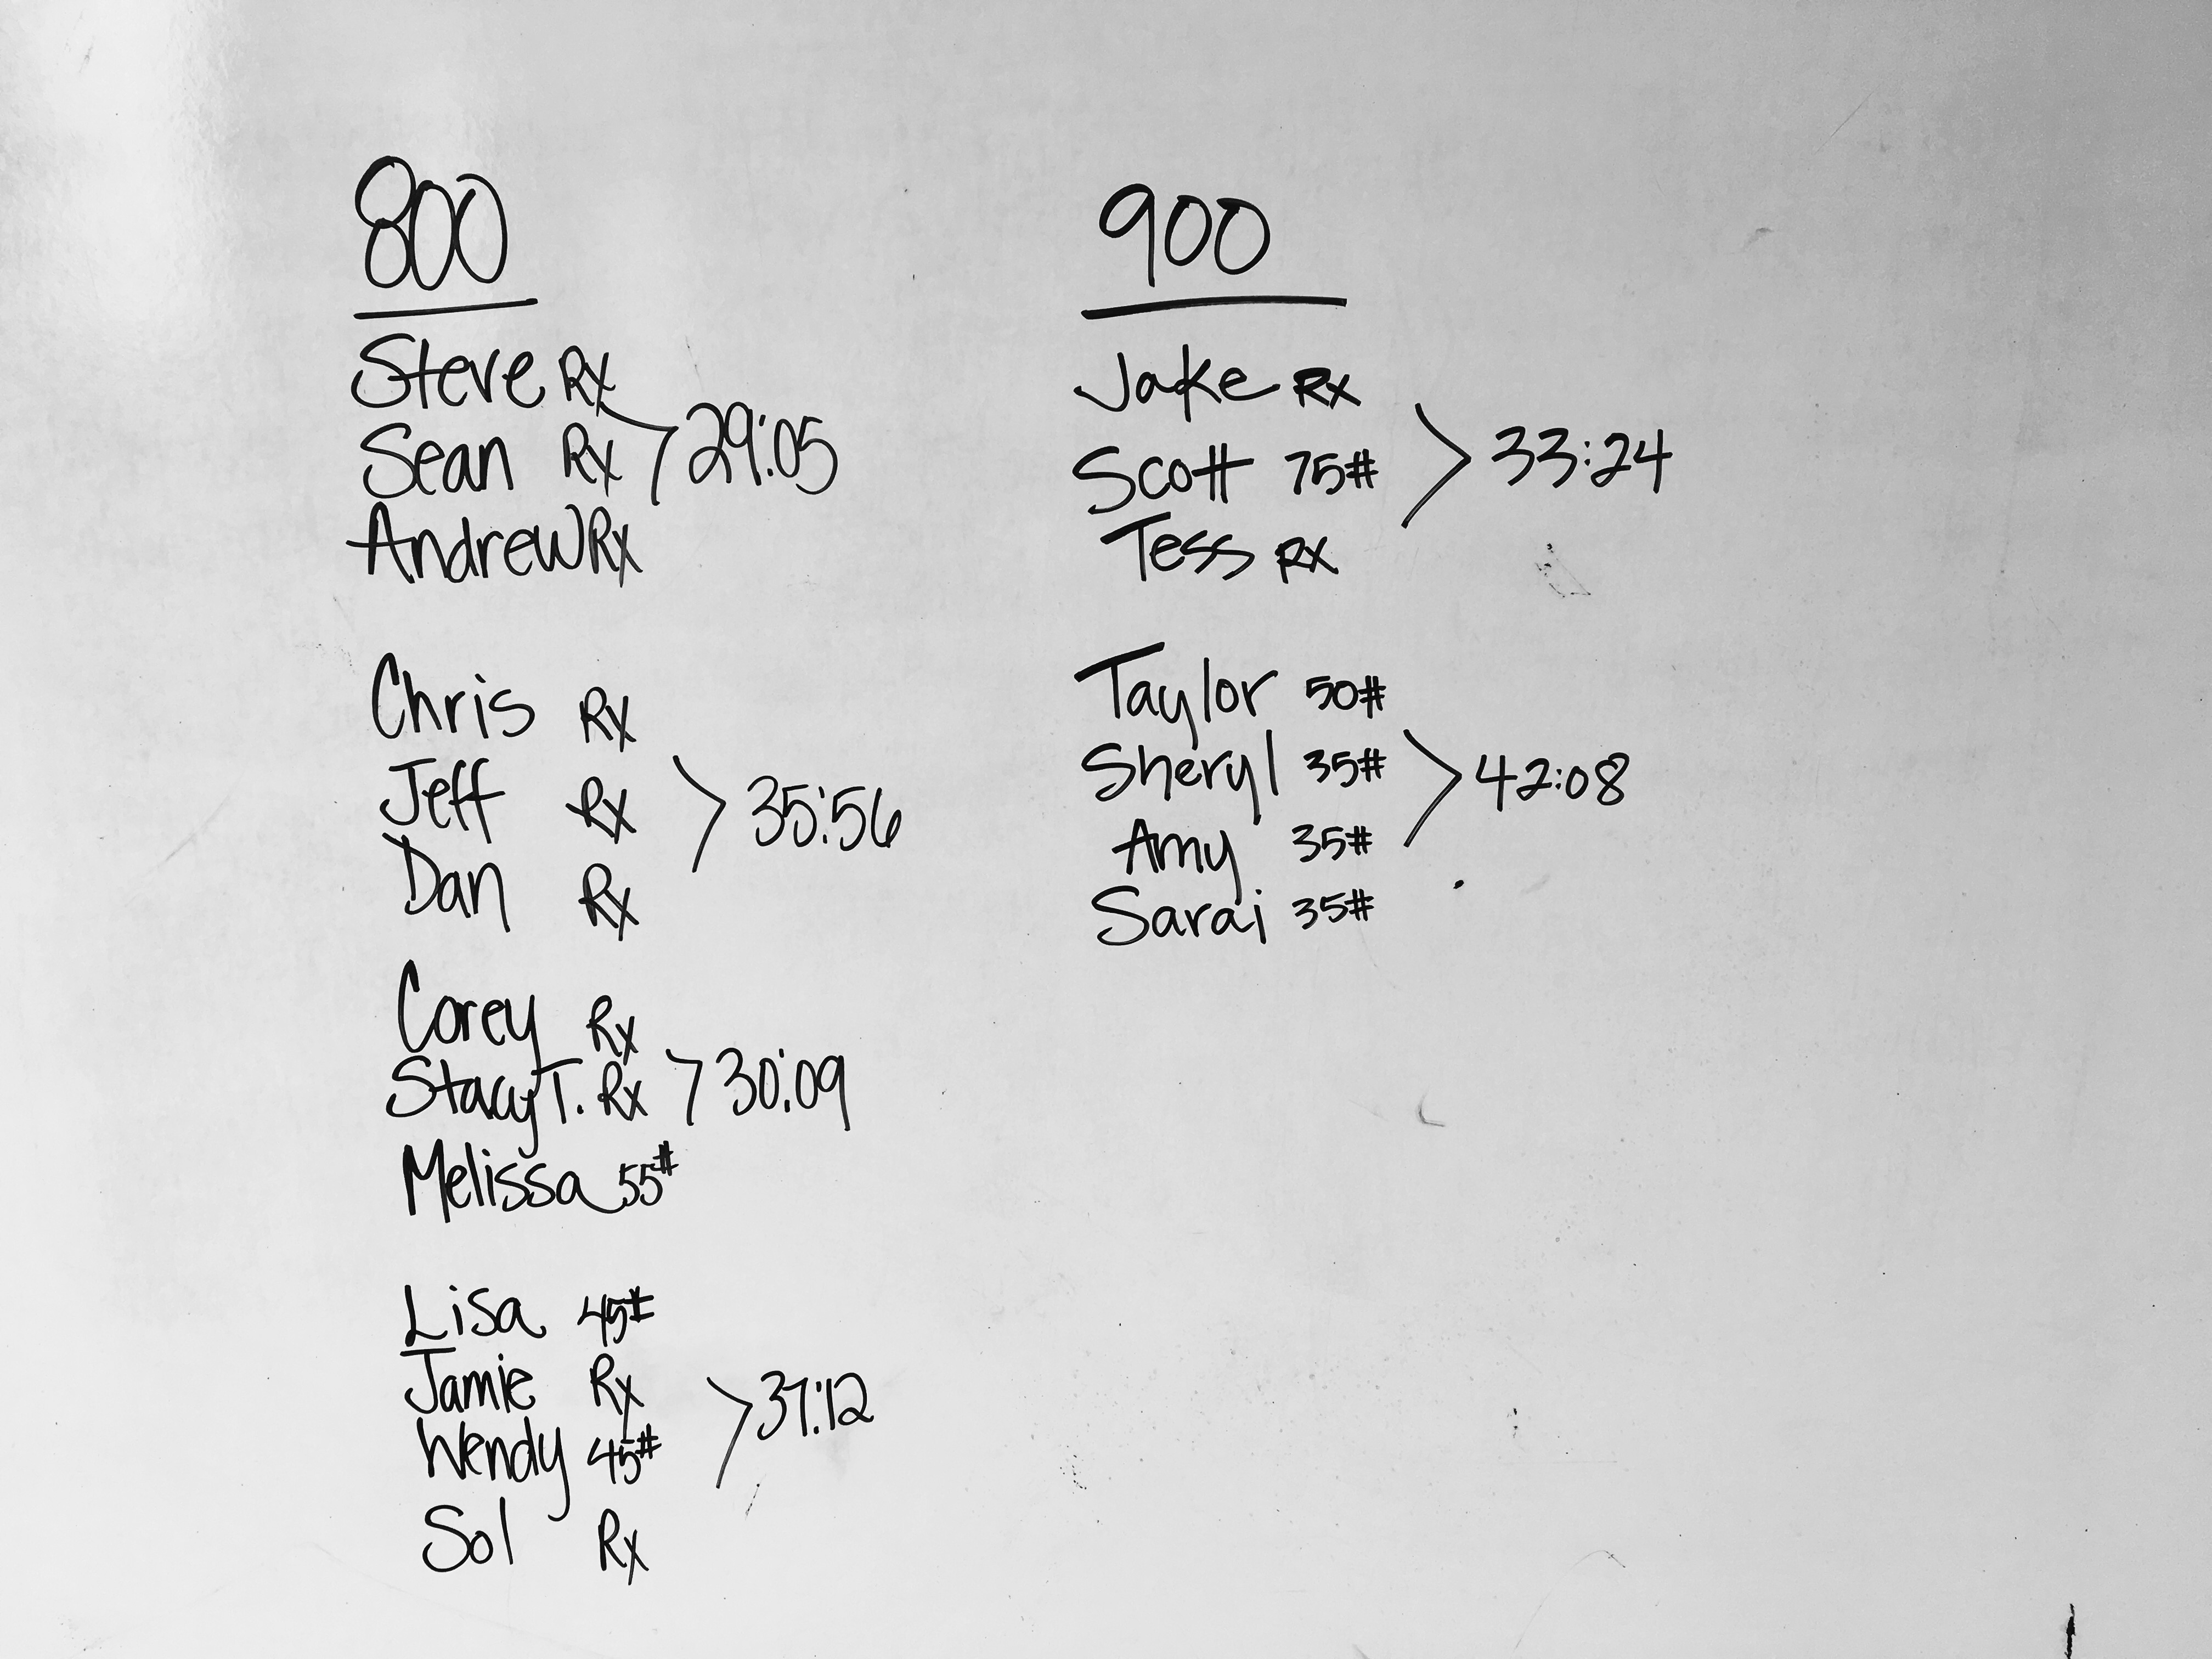 800
Steve Rx
Sean Rx > 29:05
Andrew Rx
Chris Rx
Jeff Rx > 35:56
Dan Rx
Corey Rx
Stacy T. Rx > 30:09
Melissa 55#
Lisa 45#
Jamie Rx > 37:12
Wendy 45#
Sol Rx
900
Jake Rx
Scott 75# > 33:24
Tess Rx
Taylor 50#
Sheryl 35# > 42:08
Amy 35#
Sarai 35#